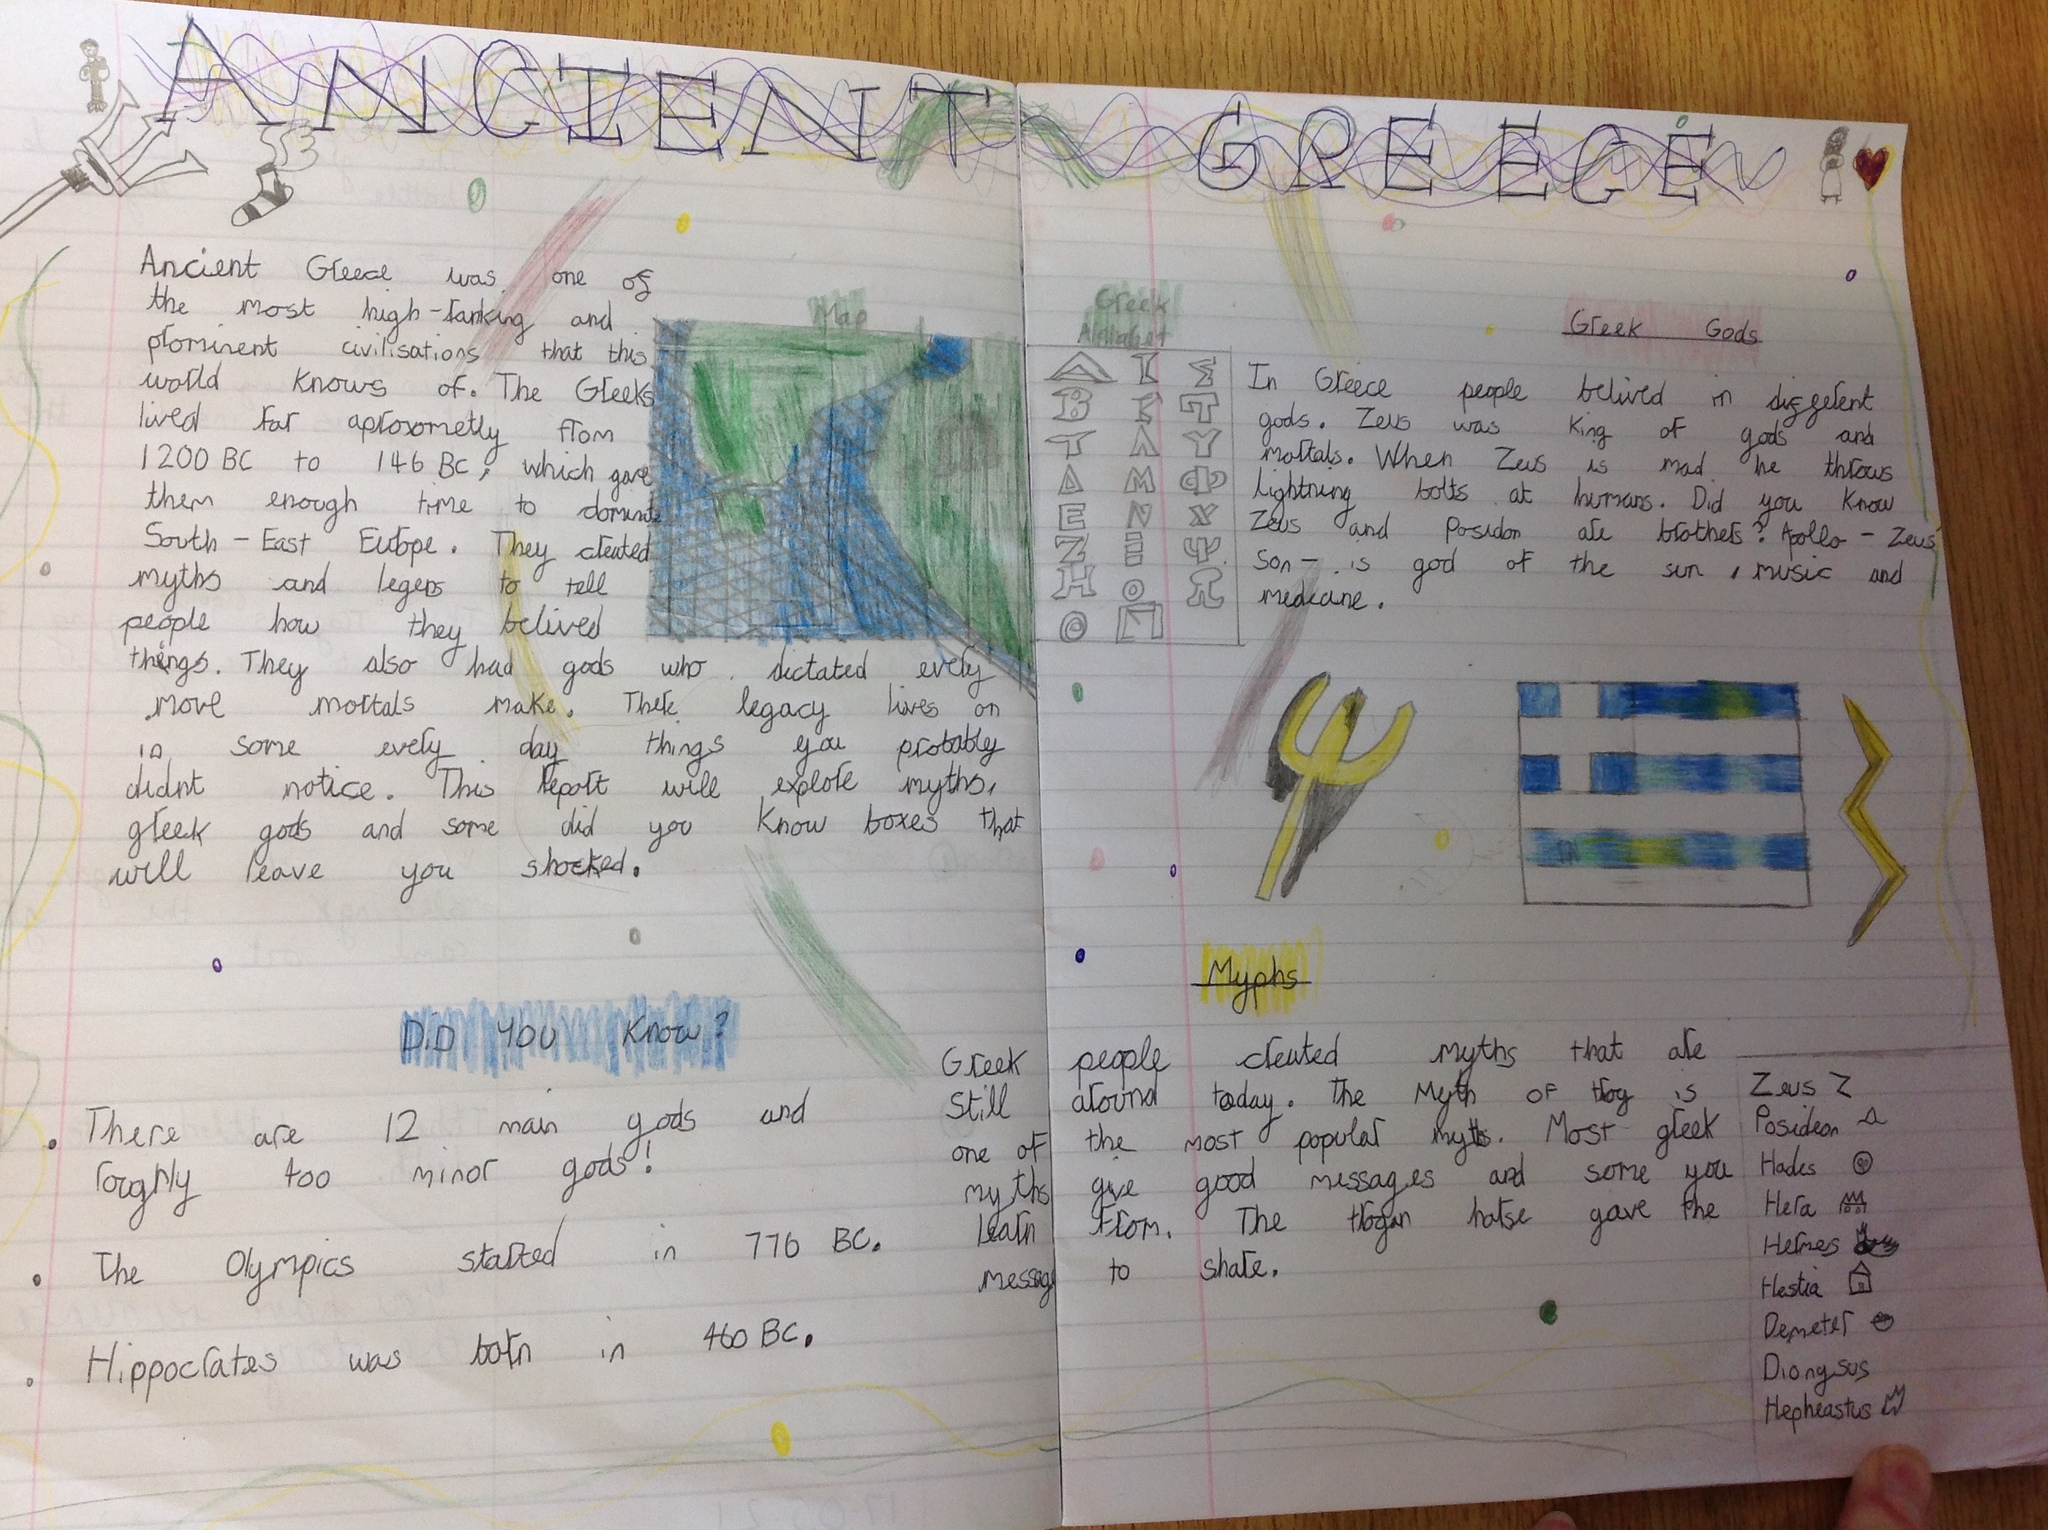 ANCIENT GREECE
Ancient Greece was one of
the most high-ranking and
prominent civilisations that this
world knows of. The Greeks
lived for aproxometly from
1200 BC to 146 BC, which gave
them enough time to dominate
South-East Europe. They created
myths and legens to tell
people how they belived
things. They also had gods who dictated every
move mortals make. There legacy lives on
in some every day things you probably
didnt notice. This report will explore myths,
greek gods and some did you know boxes that
will leave you shocked.
Map
DiD YOU Know?
• There are 12 main gods and
roughly 400 minor gods!
• The Olympics started in 776 BC.
• Hippocrates was born in 460 BC.
Greek
Alphabet
Α Ι Σ
Β Κ Τ
Γ Λ Υ
Δ Μ Φ
Ε Ν Χ
Ζ Ξ Ψ
Η Ο Ω
Θ Π
Greek Gods
In Greece people belived in different
gods. Zeus was king of gods and
mortals. When Zeus is mad he throws
lightning bolts at humans. Did you know
Zeus and Posidon are brothers? Apollo - Zeus'
Son - is god of the sun, music and
medicine.
Myphs
Greek people created myths that are
still around today. The Myth of troy is
one of the most popular myths. Most greek
myths give good messages and some you
learn from. The trogan horse gave the
message to share.
Zeus
Posideon
Hades
Hera
Hermes
Hestia
Demeter
Dionysus
Hepheastus